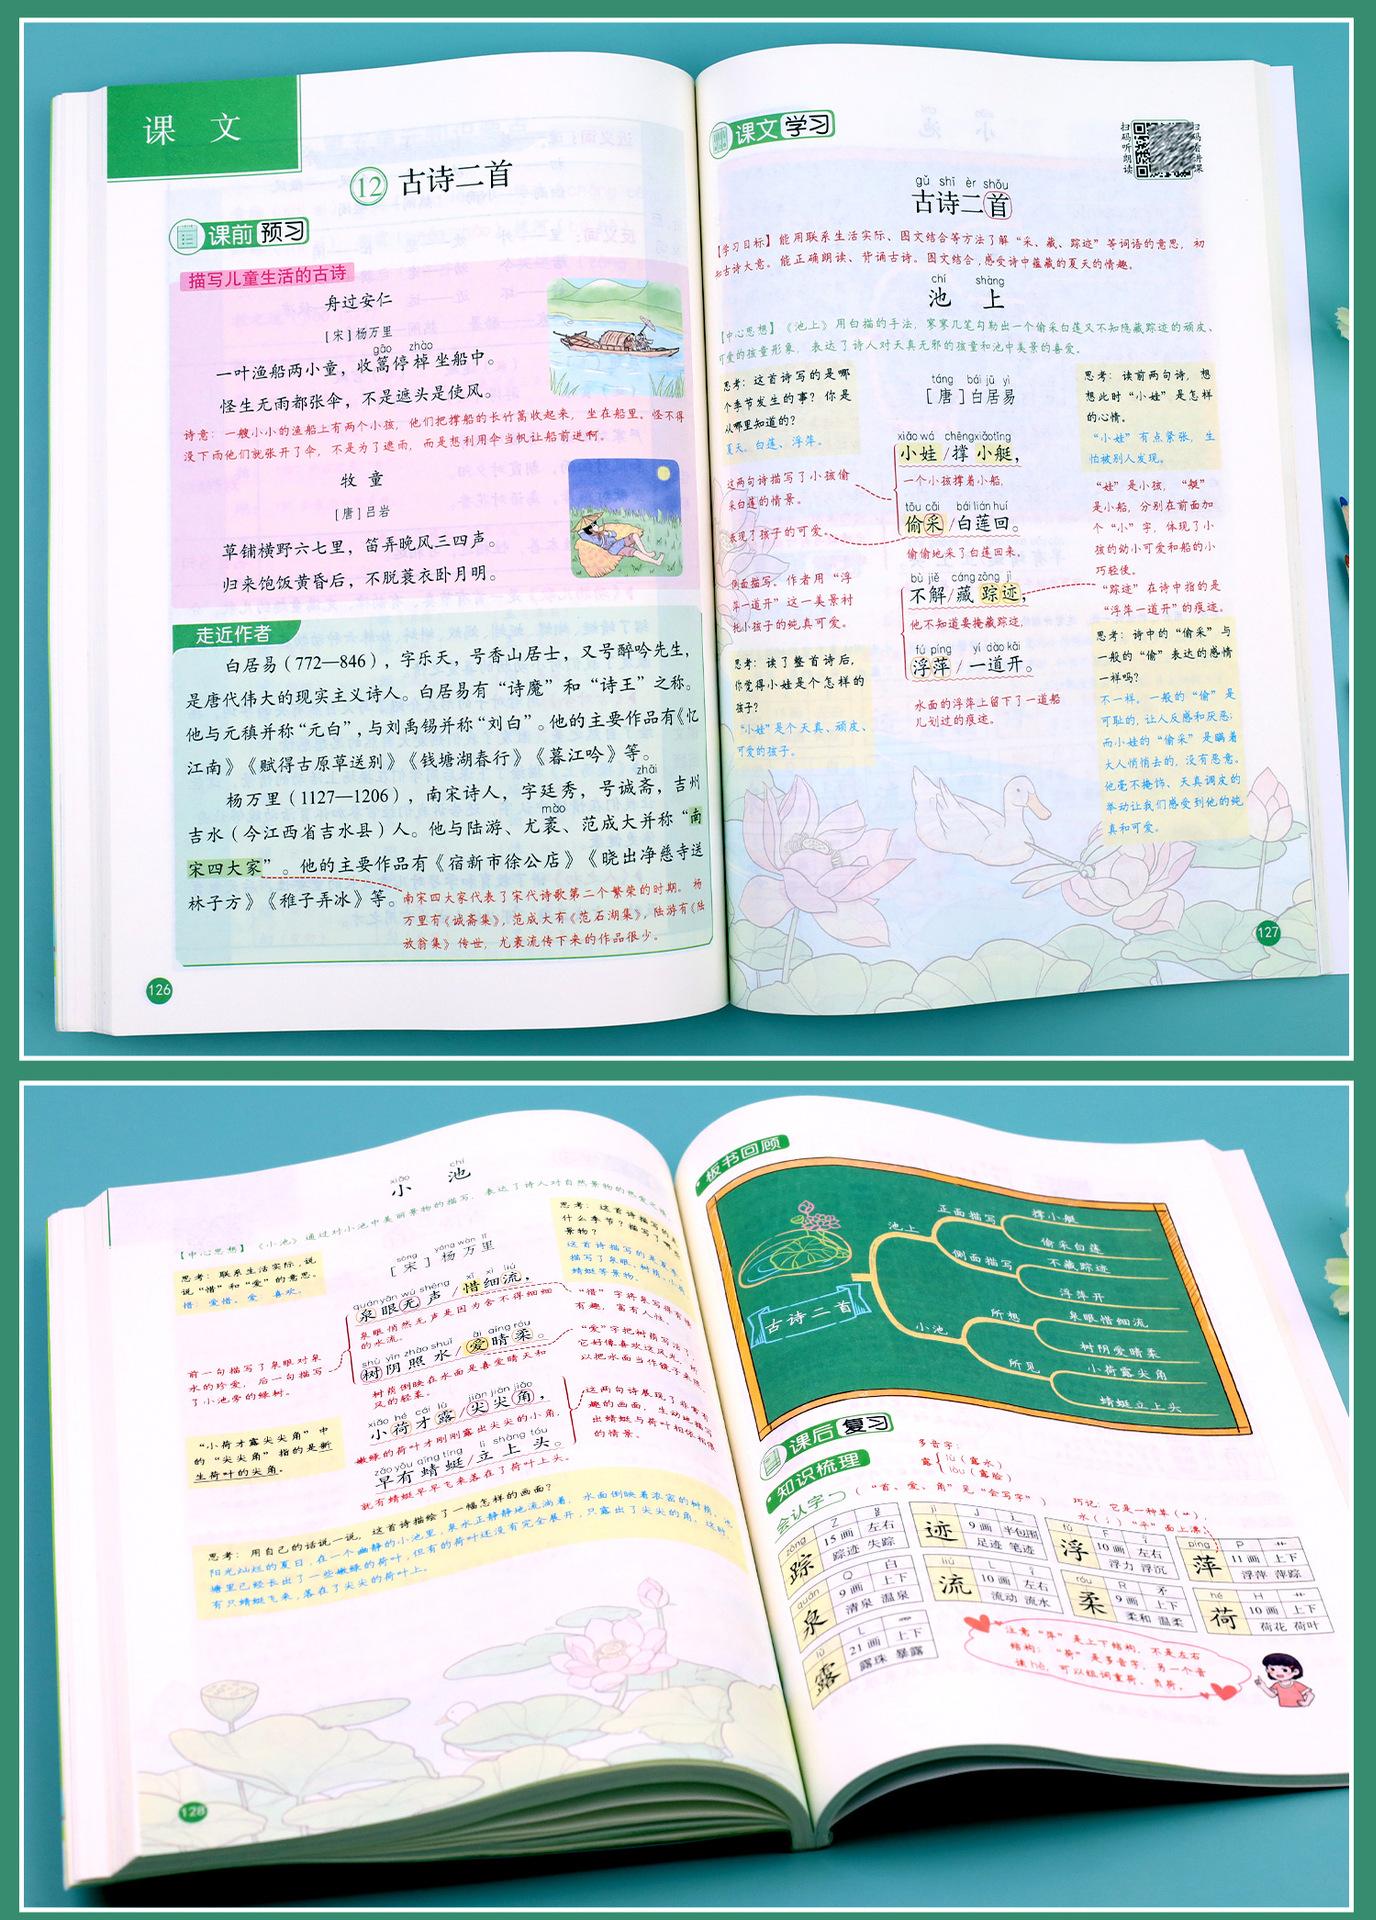 课 文
12 古诗二首
课前 预习
描写儿童生活的古诗
舟过安仁
[宋]杨万里
gāo zhào
一叶渔船两小童，收篙停棹坐船中。
怪生无雨都张伞，不是遮头是使风。
诗意：一艘小小的渔船上有两个小孩，他们把撑船的长竹篙收起来，坐在船里。怪不得
没下雨他们就张开了伞，不是为了遮雨，而是想利用伞当帆让船前进啊。
牧 童
[唐]吕岩
草铺横野六七里，笛弄晚风三四声。
归来饱饭黄昏后，不脱蓑衣卧月明。
走近作者
白居易（772—846），字乐天，号香山居士，又号醉吟先生，
是唐代伟大的现实主义诗人。白居易有“诗魔”和“诗王”之称。
他与元稹并称“元白”，与刘禹锡并称“刘白”。他的主要作品有《忆
江南》《赋得古原草送别》《钱塘湖春行》《暮江吟》等。
zhāi
杨万里（1127—1206），南宋诗人，字廷秀，号诚斋，吉州
mào
吉水（今江西省吉水县）人。他与陆游、尤袤、范成大并称“南
宋四大家”。他的主要作品有《宿新市徐公店》《晓出净慈寺送
林子方》《稚子弄冰》等。
南宋四大家代表了宋代诗歌第二个繁荣的时期。杨
万里有《诚斋集》，范成大有《范石湖集》，陆游有《陆
放翁集》传世，尤袤流传下来的作品很少。
126
课文 学习
扫码听朗读
扫码看讲课
gǔ shī èr shǒu
古诗二首
【学习目标】能用联系生活实际、图文结合等方法了解“采、藏、踪迹”等词语的意思，初
知古诗大意。能正确朗读、背诵古诗。图文结合，感受诗中蕴藏的夏天的情趣。
chí shàng
池 上
【中心思想】《池上》用白描的手法，寥寥几笔勾勒出一个偷采白莲又不知隐藏踪迹的顽皮、
可爱的孩童形象，表达了诗人对天真无邪的孩童和池中美景的喜爱。
思考：这首诗写的是哪
个季节发生的事？你是
从哪里知道的？
夏天。白莲、浮萍。
这两句诗描写了小孩偷
采白莲的情景。
表现了孩子的可爱。
侧面描写。作者用“浮
萍一道开”这一美景衬
托小孩子的纯真可爱。
思考：读了整首诗后，
你觉得小娃是个怎样的
孩子？
“小娃”是个天真、顽皮、
可爱的孩子。
táng bái jū yì
[唐]白居易
xiǎo wá chēng xiǎo tǐng
小娃/撑 小艇，
一个小孩撑着小船，
tōu cǎi bái lián huí
偷采/白莲回。
偷偷地采了白莲回来。
bù jiě cáng zōng jì
不解/藏 踪迹，
他不知道要掩藏踪迹，
fú píng yí dào kāi
浮萍/一道开。
水面的浮萍上留下了一道船
儿划过的痕迹。
思考：读前两句诗，想
想此时“小娃”是怎样
的心情。
“小娃”有点紧张，生
怕被别人发现。
“娃”是小孩，“艇”
是小船，分别在前面加
个“小”字，体现了小
孩的幼小可爱和船的小
巧轻便。
“踪迹”在诗中指的是
“浮萍一道开”的痕迹。
思考：诗中的“偷采”与
一般的“偷”表达的感情
一样吗？
不一样。一般的“偷”是
可耻的，让人反感和厌恶；
而小娃的“偷采”是瞒着
大人悄悄去的，没有恶意。
他毫不掩饰、天真调皮的
举动让我们感受到他的纯
真和可爱。
127
xiǎo chí
小 池
【中心思想】《小池》通过对小池中美丽景物的描写，表达了诗人对自然景物的热爱之情。
思考：联系生活实际，说
说“惜”和“爱”的意思。
惜：爱惜。爱：喜欢。
前一句描写了泉眼对泉
水的珍爱，后一句描写
了小池旁的绿树。
“小荷才露尖尖角”中
的“尖尖角”指的是新
生荷叶的尖角。
sòng yáng wàn lǐ
[宋]杨万里
quán yǎn wú shēng xī xì liú
泉眼无声/惜细流，
泉眼悄然无声是因为舍不得细细
的水流。
shù yīn zhào shuǐ ài qíng róu
树阴照水/爱晴柔。
树荫倒映在水面是喜爱晴天和
风的轻柔。
xiǎo hé cái lù jiān jiān jiǎo
小荷才露/尖尖角，
嫩绿的荷叶才刚刚露出尖尖的小角，
zǎo yǒu qīng tíng lì shàng tóu
早有蜻蜓/立上头。
就有蜻蜓早早飞来落在了荷叶上头。
思考：这首诗描写的是
什么季节？描写了哪些
景物？
这首诗描写的是夏季，
描写了泉眼、树荫、小荷、
蜻蜓等景物。
“惜”字将泉写得有情
有趣，富有人性。
“爱”字把树荫写活了，
这两句诗展现了非常有
趣的画面，生动地描写
出蜻蜓与荷叶相依相偎
的情景。
思考：用自己的话说一说，这首诗描绘了一幅怎样的画面？
阳光灿烂的夏日，在一个幽静的小池里，泉水正静静地流淌着，水面倒映着浓密的树荫。池
塘里已经长出了一些嫩绿的荷叶，但有的荷叶还没有完全展开，只露出了尖尖的角，这时，
有只蜻蜓飞来，落在了尖尖的荷叶上。
128
板书回顾
古诗二首
池上
正面描写
撑小艇
偷采白莲
侧面描写
不藏踪迹
浮萍开
小池
所想
泉眼惜细流
树阴爱晴柔
所见
小荷露尖角
蜻蜓立上头
课后 复习
知识梳理
多音字：
露 lù（露水）
lòu（露脸）
会认字（“首、爱、角”见“会写字”）
巧记：它是一种草（艹），
水（氵）“平”面上漂。
zōng 踪 Z 15画 左右 踪迹 失踪
jì 迹 J 9画 半包围 足迹 笔迹
fú 浮 F 10画 左右 浮力 浮沉
píng 萍 P 艹 11画 上下 浮萍 萍踪
quán 泉 Q 白 9画 上下 清泉 温泉
liú 流 L 氵 10画 左右 流动 流水
róu 柔 R 矛 9画 上下 柔和 温柔
hé 荷 H 艹 10画 上下 荷花 荷叶
lù 露 L 21画 上下 露珠 暴露
注意“萍”是上下结构，不是左右
结构；“荷”是多音字，另一个音
读hè，可以组词重荷、负荷。